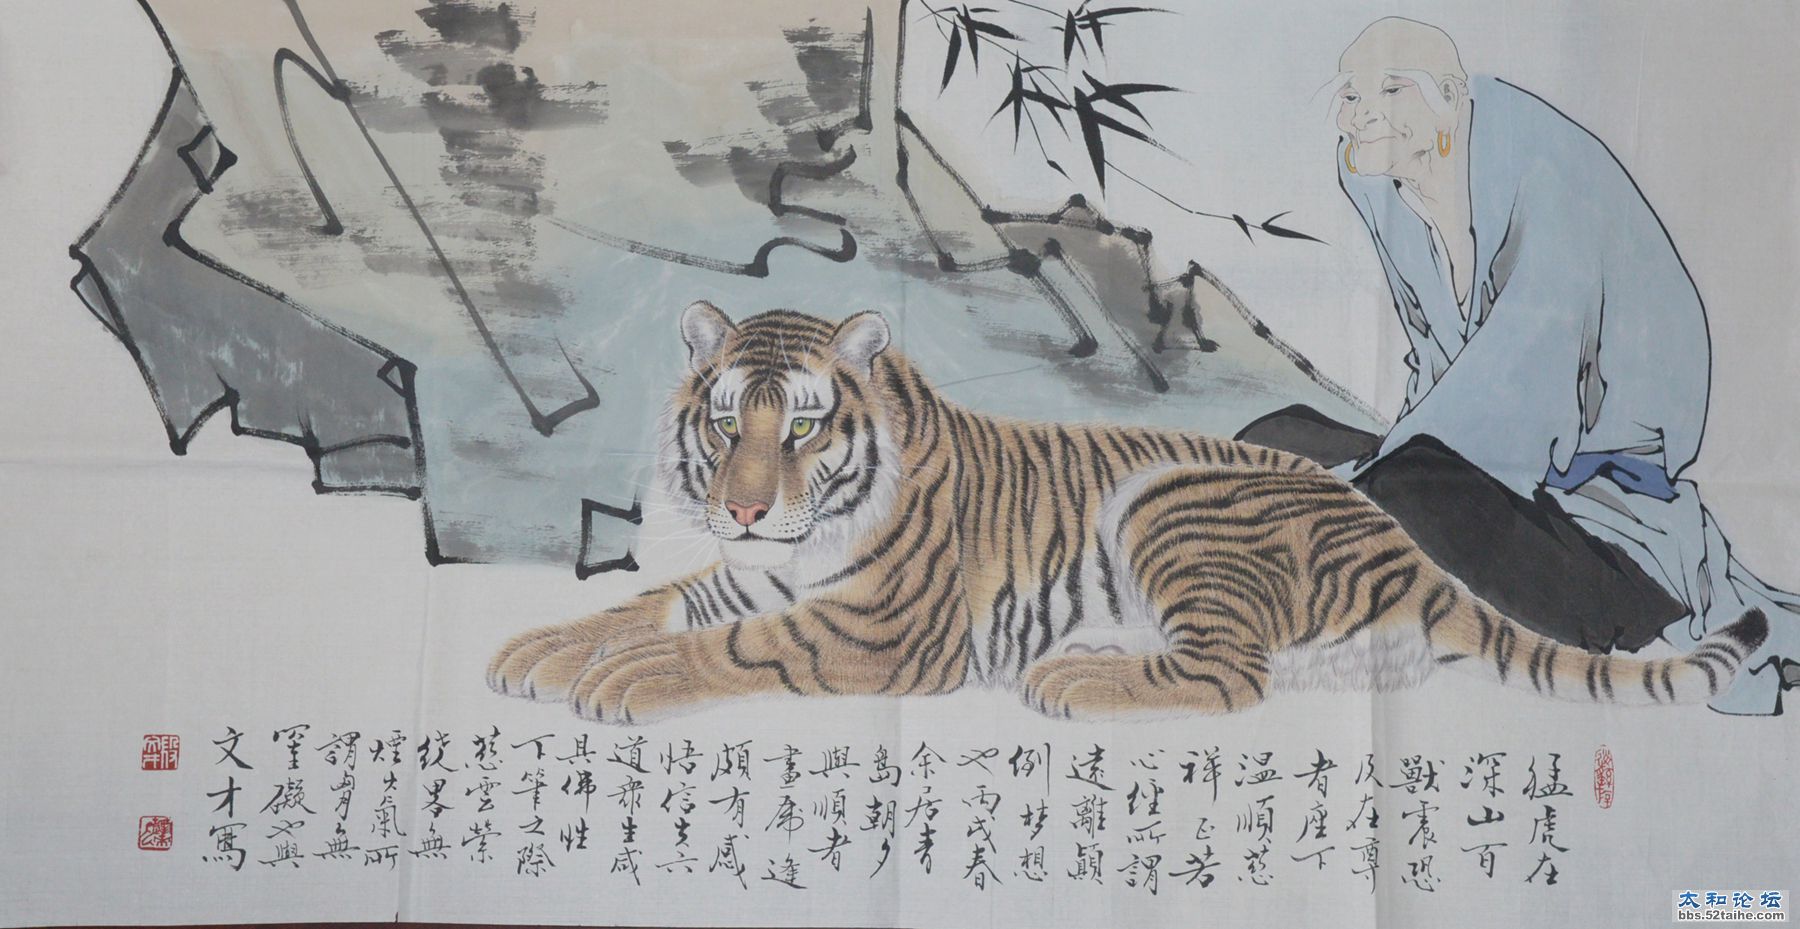 猛虎在
深山百
獸震恐
及在尊
者座下
温順慈
祥正若
心經所謂
遠離顛
倒梦想
也丙戌春
余居青
島朝夕
與順者
畫虎逢
頗有感
悟信夫六
道衆生咸
具佛性
下筆之際
慈雲縈
繞畧無
煙火氣所
謂胷無
罣礙也與
文才寫
太和论坛
bbs.52taihe.com